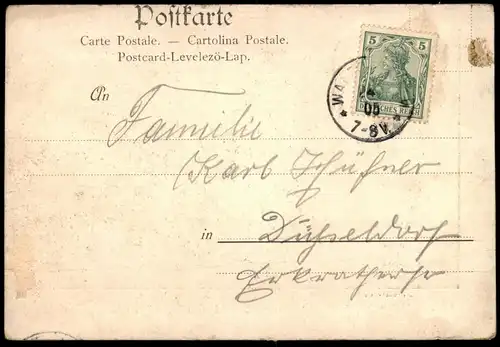 Postkarte
Carte Postale. — Cartolina Postale.
Postcard-Levelező-Lap.
5 5
DEUTSCHES REICH
WA
05
7-8V.
An
Familie
Karl
in Düsseldorf